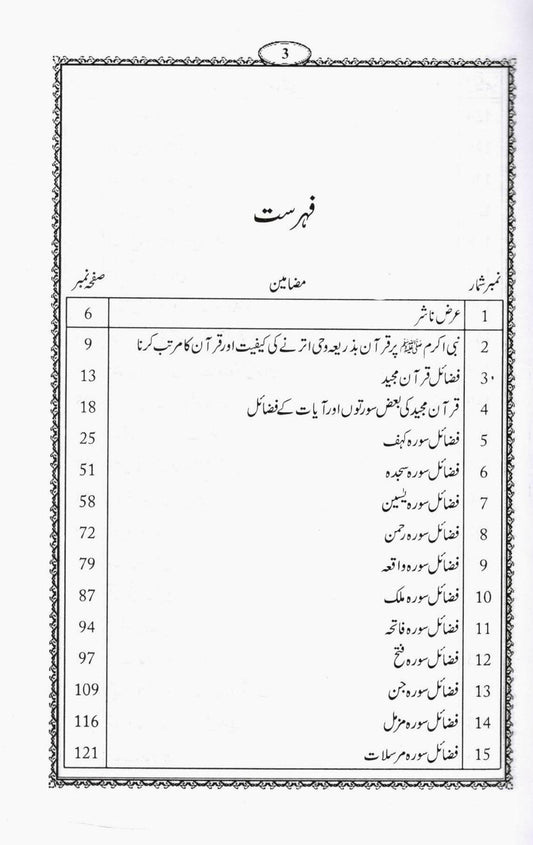 3
فہرست
نمبر شمار مضامین صفحہ نمبر
1 عرض ناشر 6
2 نبی اکرم ﷺ پر قرآن بذریعہ وحی اترنے کی کیفیت اور قرآن کا مرتب کرنا 9
3 فضائل قرآن مجید 13
4 قرآن مجید کی بعض سورتوں اور آیات کے فضائل 18
5 فضائل سورہ کہف 25
6 فضائل سورہ سجدہ 51
7 فضائل سورہ یٰسین 58
8 فضائل سورہ رحمن 72
9 فضائل سورہ واقعہ 79
10 فضائل سورہ ملک 87
11 فضائل سورہ فاتحہ 94
12 فضائل سورہ فتح 97
13 فضائل سورہ جن 109
14 فضائل سورہ مزمل 116
15 فضائل سورہ مرسلات 121